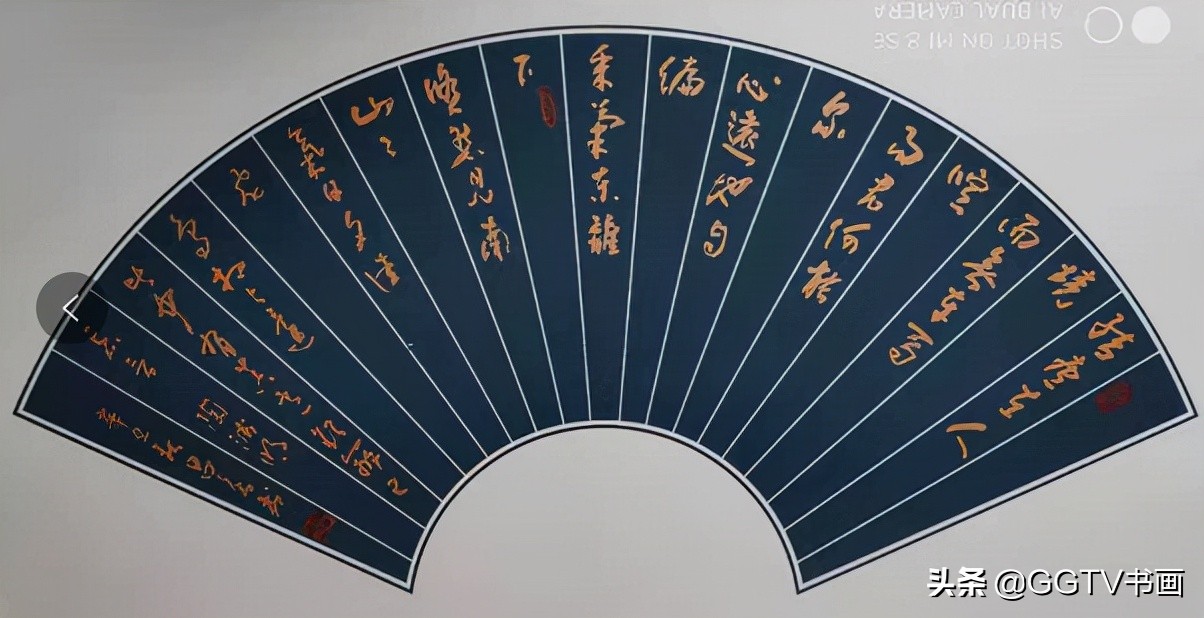 结庐在人
境
而無車馬
喧
问君何能
尔
心遠地自
偏
采菊东籬
下
悠然見南
山〻
氣日夕佳
飛
鳥相与還
此中有真意欲辨已
忘言 陶渊明
辛丑
SHOT ON MI 8 SE
AI DUAL CAMERA
头条 @GGTV书画